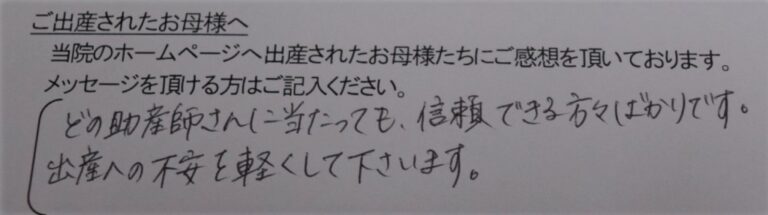 ご出産されたお母様へ
当院のホームページへ出産されたお母様たちにご感想を頂いております。
メッセージを頂ける方はご記入ください。
どの助産師さんに当たっても、信頼できる方々ばかりです。
出産への不安を軽くして下さいます。